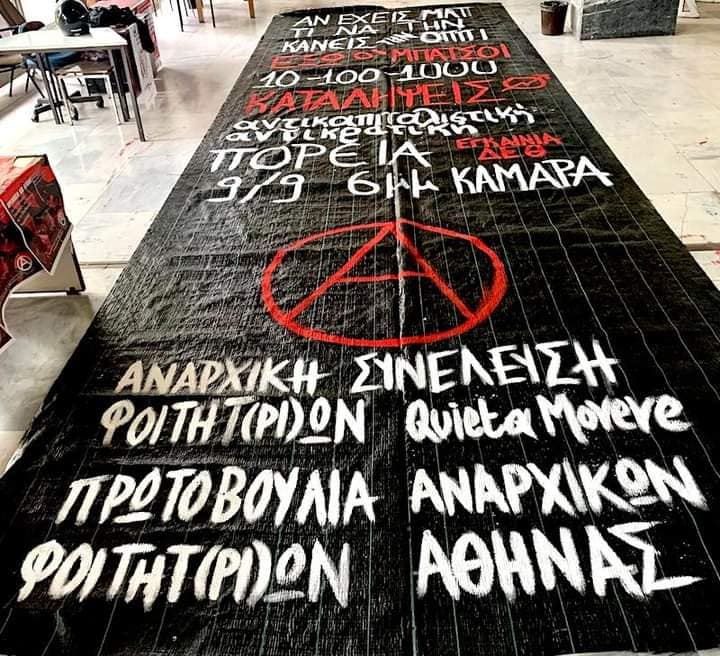 ΑΝ ΕΧΕΙΣ ΜΑΤ
ΤΙ ΝΑ ΤΗΝ
ΚΑΝΕΙΣ ΤΗΝ ΟΠΠΙ
ΕΞΩ ΟΙ ΜΠΑΤΣΟΙ
10-100-1000
ΚΑΤΑΛΗΨΕΙΣ
αντικαπιταλιστική
αντικρατική
ΠΟΡΕΙΑ ΕΓΚΑΙΝΙΑ
ΔΕΘ
9/9 6μμ ΚΑΜΑΡΑ
Α
ΑΝΑΡΧΙΚΗ ΣΥΝΕΛΕΥΣΗ
ΦΟΙΤΗΤ(ΡΙ)ΩΝ Quieta Movere
ΠΡΩΤΟΒΟΥΛΙΑ ΑΝΑΡΧΙΚΩΝ
ΦΟΙΤΗΤ(ΡΙ)ΩΝ ΑΘΗΝΑΣ